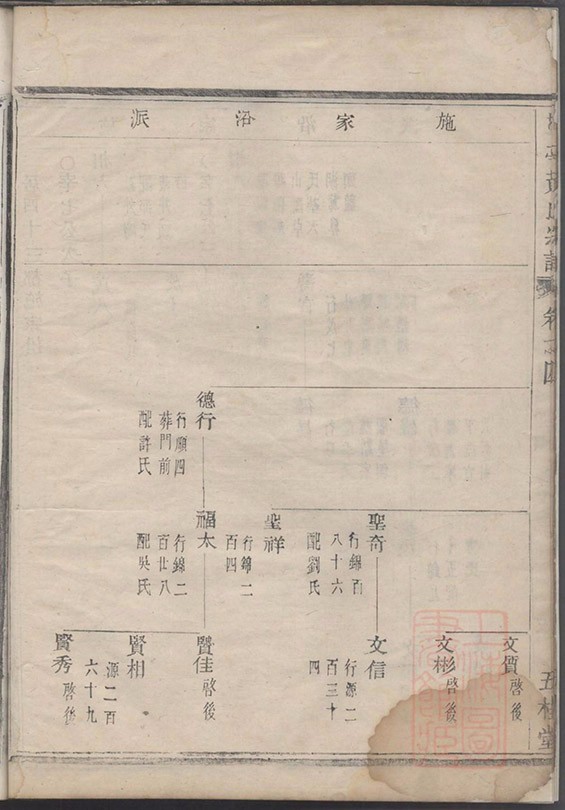 施家沿派
黃氏宗譜
卷之四
五桂堂
德行
行願四
葬門前
配許氏
聖奇
行錦百
八十六
配劉氏
聖祥
行錦二
百四
福太
行錦二
百廿八
配吳氏
文質啓後
文彬啓後
文信
行源二
百三十
四
賢佳啓後
賢相
源二百
六十九
賢秀啓後